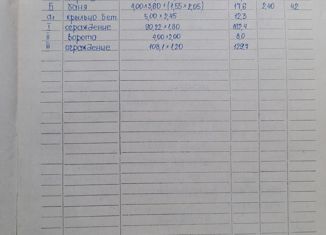 Б баня 4,00×3,60+(1,55×2,05) 17,6 2,40 42
а₁ крыльцо бет. 5,00×2,45 12,3
I ограждение 90,22×1,80 162,4
II ворота 4,00×2,00 8,0
III ограждение 108,1×1,20 129,7